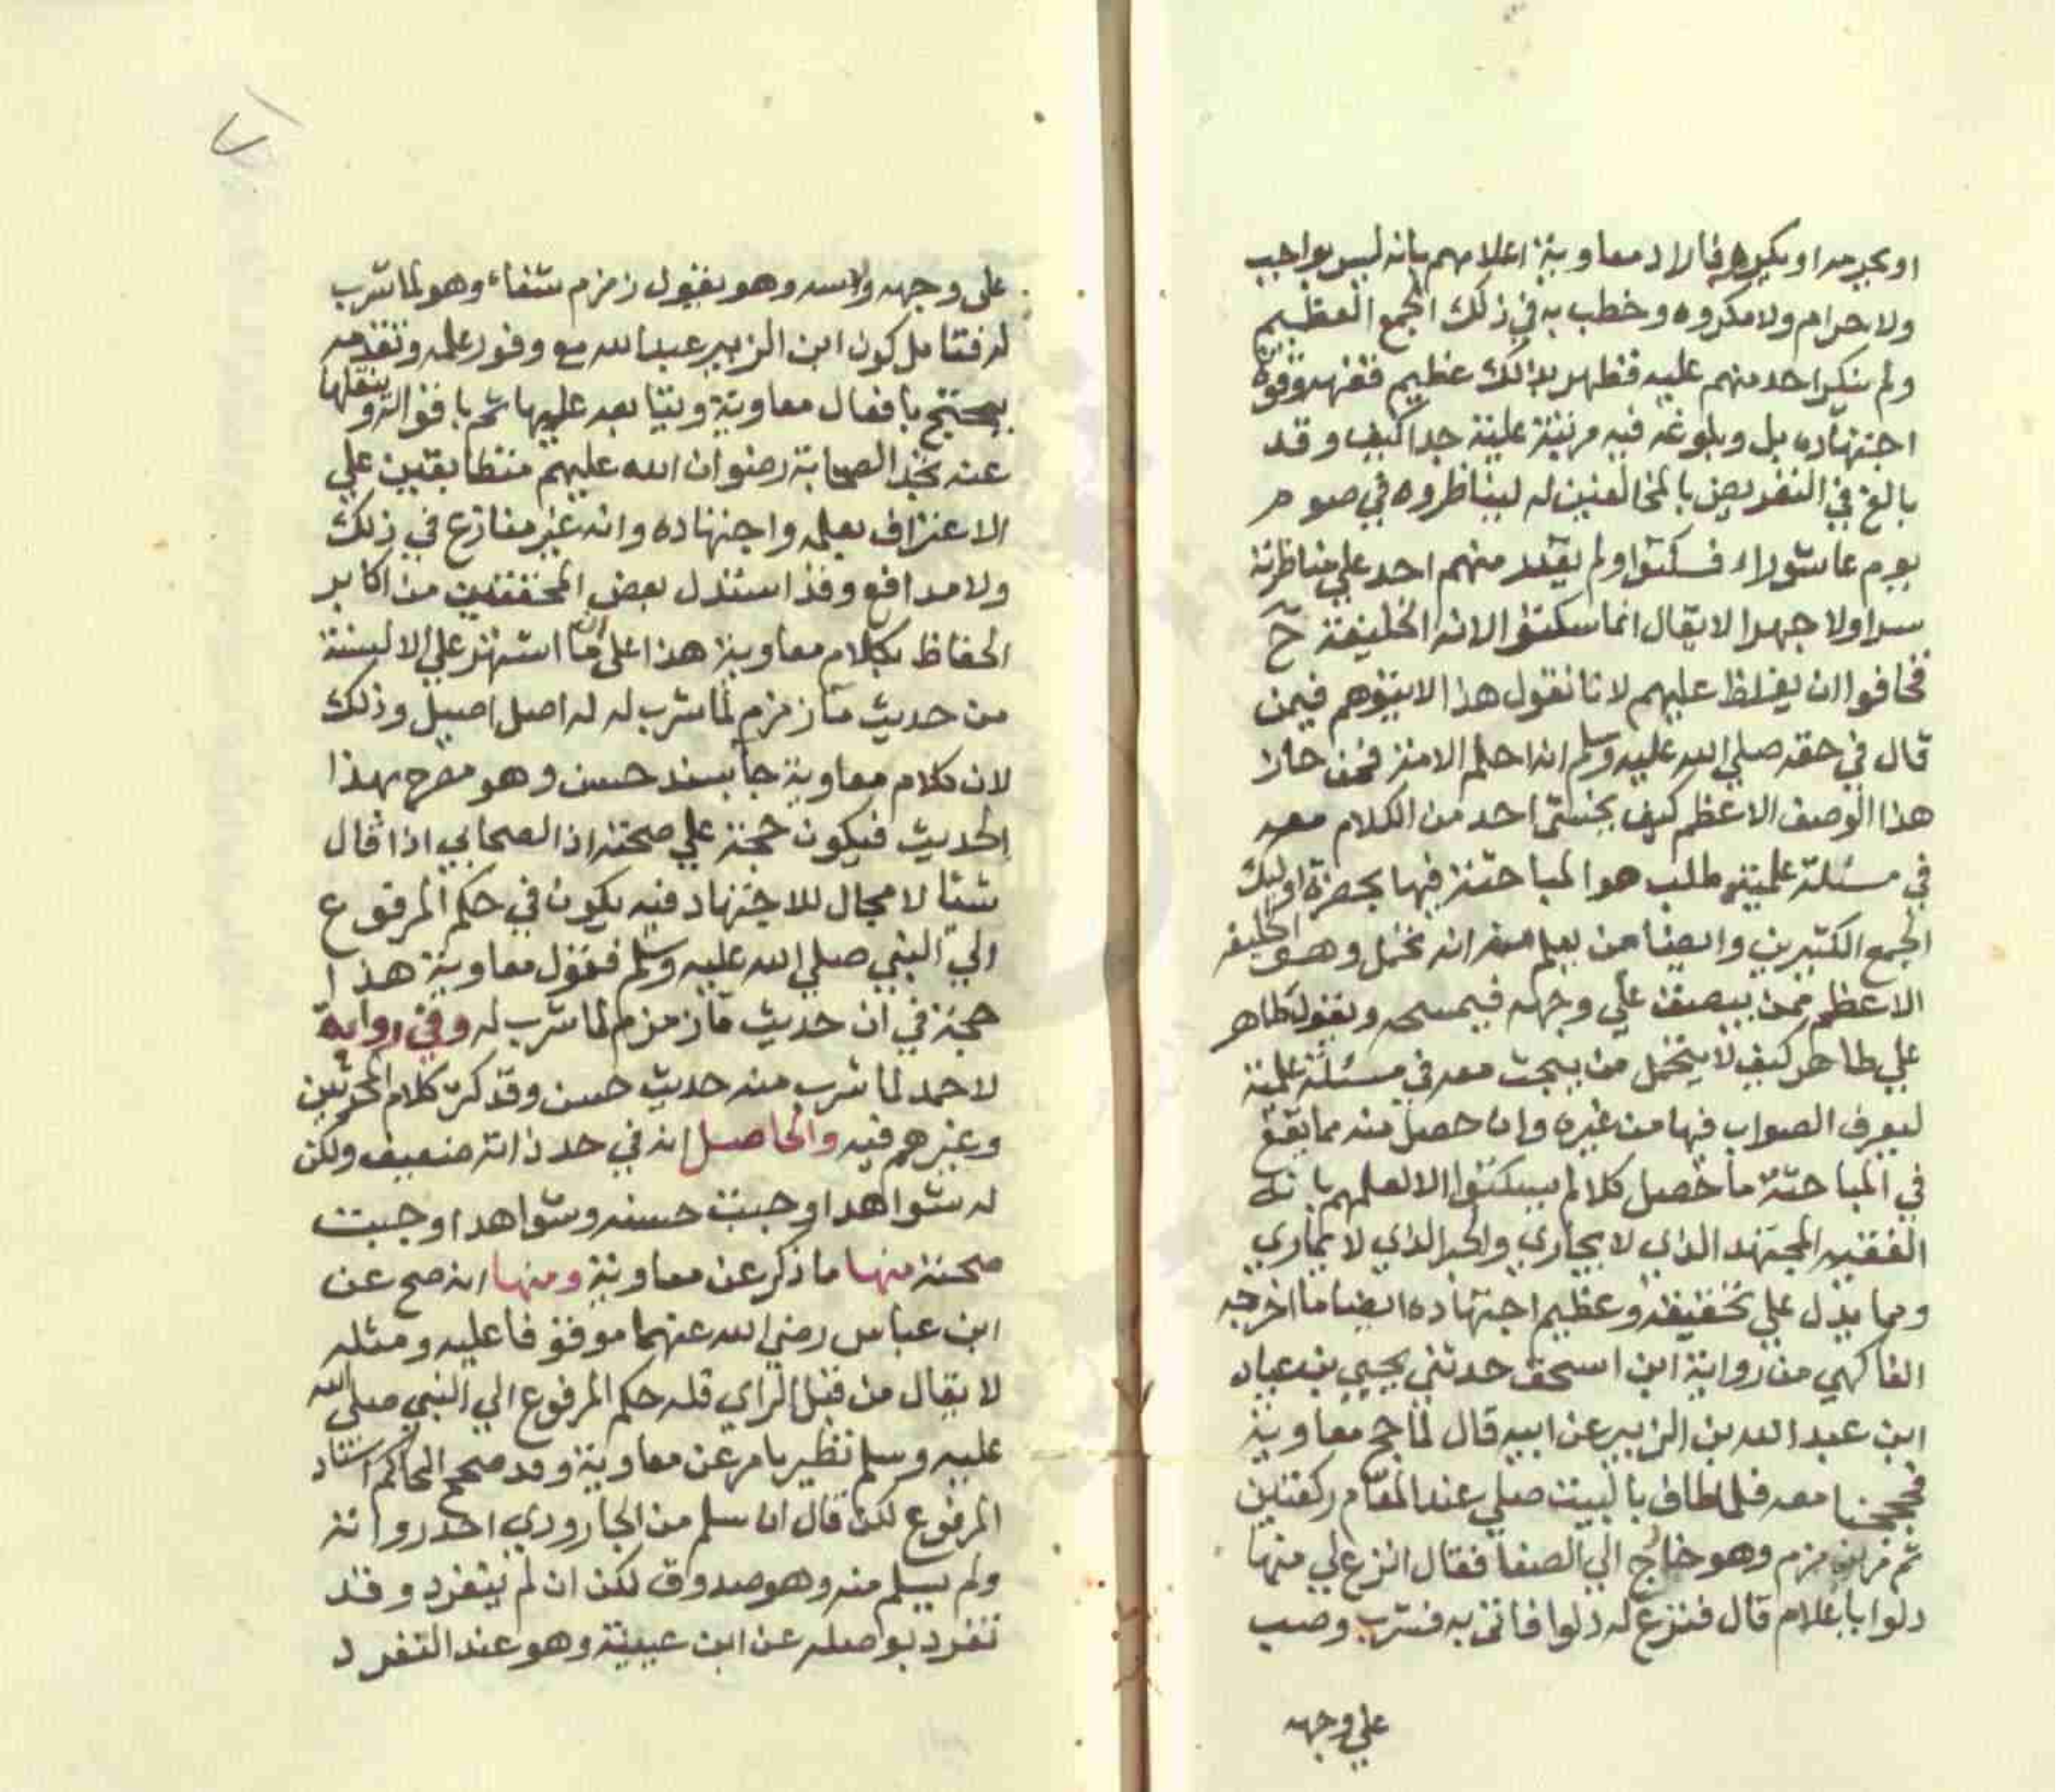 او يحرمه او يكرهه فاراد معاوية اعلامهم بانه ليس بواجب
ولا حرام ولا مكروه وخطب به في ذلك الجمع العظيم
ولم ينكر احد منهم عليه فظهر بذلك عظيم فقهه وقوة
اجتهاده بل وبلوغه فيه مرتبة علية جدا كيف وقد
بالغ في التعريض بالمخالفين له ليناظروه في صوم
يوم عاشوراء فسكتوا ولم يقدر منهم احد على مناظرته
سرا ولا جهرا لا يقال انما سكتوا لانه الخليفة ح
فخافوا ان يغلظ عليهم لانا نقول هذا لا يتوهم فيمن
قال في حقه صلي الله عليه وسلم انه احلم الامة فمن حاز
هذا الوصف الاعظم كيف يخشي احد من الكلام معه
في مسئلة علمية طلب هو المباحثة فيها بحضرة اوليك
الجمع الكثيرين وايضا من يعلم منه انه تحمل وهو الخليفة
الاعظم ممن يبصق علي وجهه فيمسحه ويقول طاهر
علي طاهر كيف لا يتحمل من يبحث معه في مسئلة علمية
ليعرف الصواب فيها من غيره وان حصل منه مما يقع
في المباحثة ما حصل كلا لم يسكتوا الا لعلمهم بانه
الفقيه المجتهد الذي لا يجاري والحبر الذي لا يماري
ومما يدل علي تحقيقه وعظيم اجتهاده ايضا ما اخرجه
الفاكهي من رواية ابن اسحق حدثني يحيي بن عباد
ابن عبد الله بن الزبير عن ابيه قال لما حج معاوية
فحججنا معه فلما طاف بالبيت صلي عند المقام ركعتين
ثم مر بزمزم وهو خارج الي الصفا فقال انزع لي منها
دلوا يا غلام قال فنزع له دلوا فاتى به فشرب وصب
علي وجهه
على وجهه وراسه وهو يقول زمزم شفاء وهو لما شرب
له فتامل كون ابن الزبير عبد الله مع وفور علمه وتقدمه
يحتج بافعال معاوية ويتابعه عليها ثم باقواله وينقلها
عنه تجد الصحابة رضوان الله عليهم متطابقين علي
الاعتراف بعلمه واجتهاده وانه غير منازع في ذلك
ولا مدافع وقد استدل بعض المحققين من اكابر
الحفاظ بكلام معاوية هذا على ان ما اشتهر علي الالسنة
من حديث ماء زمزم لما شرب له له اصل اصيل وذلك
لان كلام معاوية جا بسند حسن وهو مصرح بهذا
الحديث فيكون حجة علي صحته اذ الصحابي اذا قال
شئا لا مجال للاجتهاد فيه يكون في حكم المرفوع
الي النبي صلي الله عليه وسلم فقول معاوية هذا
حجة في ان حديث ماء زمزم لما شرب له وفي رواية
لاحمد لما شرب منه حديث حسن وقد كثر كلام المحدثين
وغيرهم فيه والحاصل انه في حد ذاته ضعيف ولكن
له شواهد اوجبت حسنه وشواهد اوجبت
صحته منها ما ذكر عن معاوية ومنها انه صح عن
ابن عباس رضي الله عنهما موقوفا عليه ومثله
لا يقال من قبل الراي فله حكم المرفوع الي النبي صلي الله
عليه وسلم نظير ما مر عن معاوية وقد صحح الحاكم اسناد
المرفوع لكن قال ان سلم من الجارودي احد رواته
ولم يسلم منه وهو صدوق لكن ان لم ينفرد وقد
تفرد بوصله عن ابن عيينة وهو عند التفرد